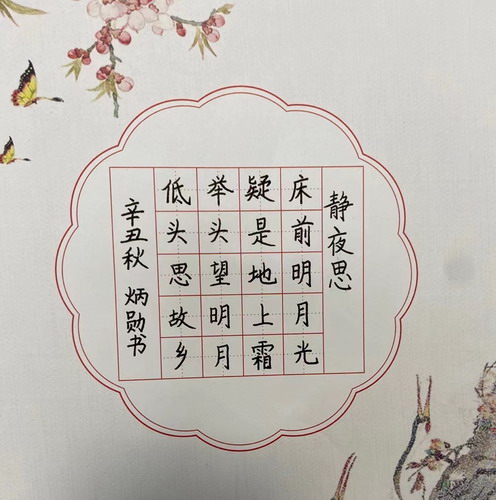 静夜思
床前明月光
疑是地上霜
举头望明月
低头思故乡
辛丑秋 炳勋书